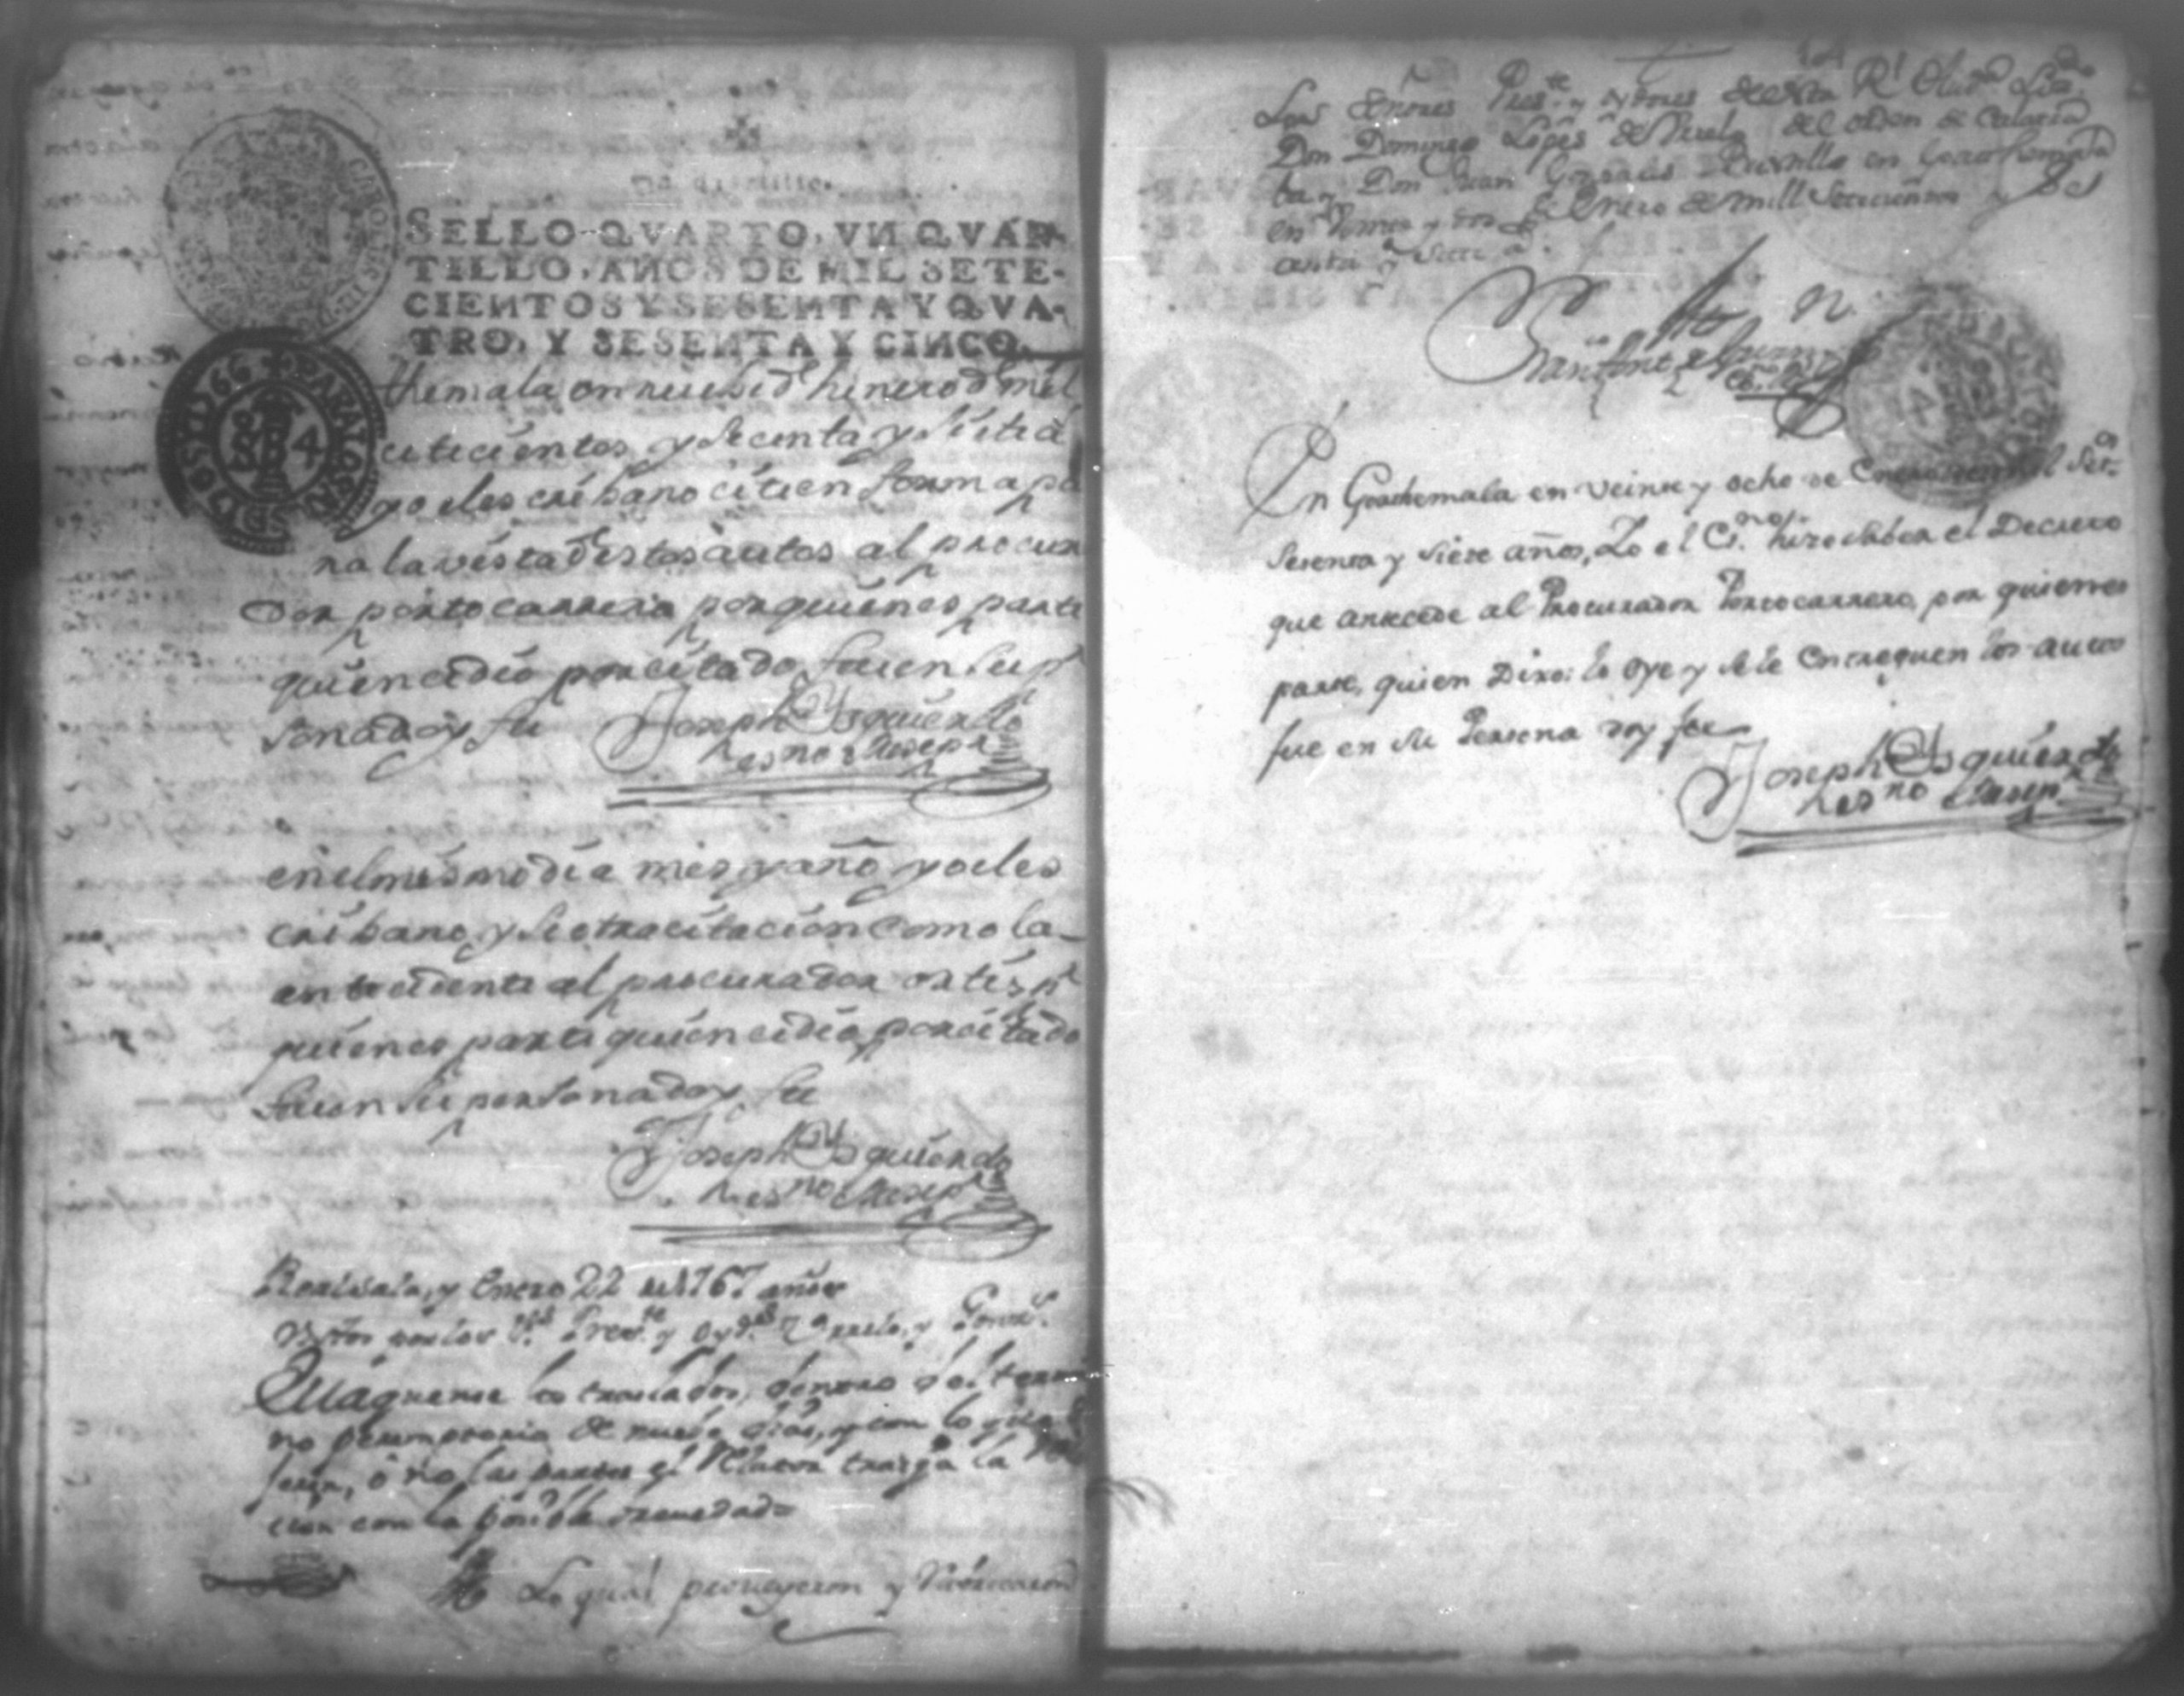 Un quartillo.
SELLO QVARTO, VN QVAR-
TILLO, AÑOS DE MIL SETE-
CIENTOS Y SESENTA Y QVA-
TRO, Y SESENTA Y CINCO.
themala en nuebe d henero d mil
cetecientos y Secenta y Siete a
yo el es cribano cite en forma pa
ra la vista destos autos al procura
dor porto carrero por quien es parte
quien cedio por citado fue en su p
sona doy fee Joseph Ysquierdo
esno Recepr
en el mesmo dia mes y año yo el es
cribano yse otra citacion Como la
antecedente al procurador ortis pr
quien es parte quien cedio por citado
fue en su persona doy fee
Joseph Ysquierdo
esno Recepr
Real Sala, y Enero 22 de 1767 años
por los Ss. Preste. y Oyds.
Saquense los traslados, dentro del termi
no peremptorio de nuebe dias, y con lo que
ó no las partes el Relator traiga la
cion con la posible brevedad
Lo qual proveyeron y Rubricaron
Los Señores Preste. y oydores de esta Rl. Audª Lizdo.
Don Domingo Lopes de Urelo del orden de Calatra
ba y Don Juan Gonzales Bustillo en Goathemala
en Veinte y dos de Enero de mill Setecientos y Ses
enta y Siete as.
En Goathemala en veinte y ocho de Enero de mil Setos.
Sesenta y Siete años, Yo el Esno. hize saber el Decreto
que antecede al Procurador Portocarrero, por quien es
parte, quien Dixo: lo oye y se le Entreguen los autos
fue en su Persona doy fee
Joseph Ysquierdo
esno Recepr